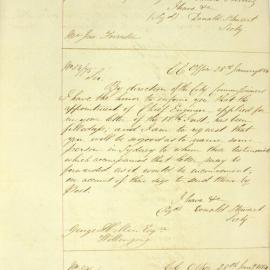 I have &c
(Sigd) Donald Stewart
Secty
Mr Jas
C C Office 28th January
Sir
By direction of the City Commissioners
I have the honor to inform you that the
appointment of Chief Engineer applied for
in your letter of the 18th Inst. has been
filled up, and I am to request that
you will be so good as to name some
person in Sydney to whom the testimonials
which accompanied that letter may be
forwarded as it would be inconvenient
on account of their size to send them by
Post.
I have &c
(Sigd) Donald Stewart
Secty
George Esqr
Wollongong
C C Office 28th Jany